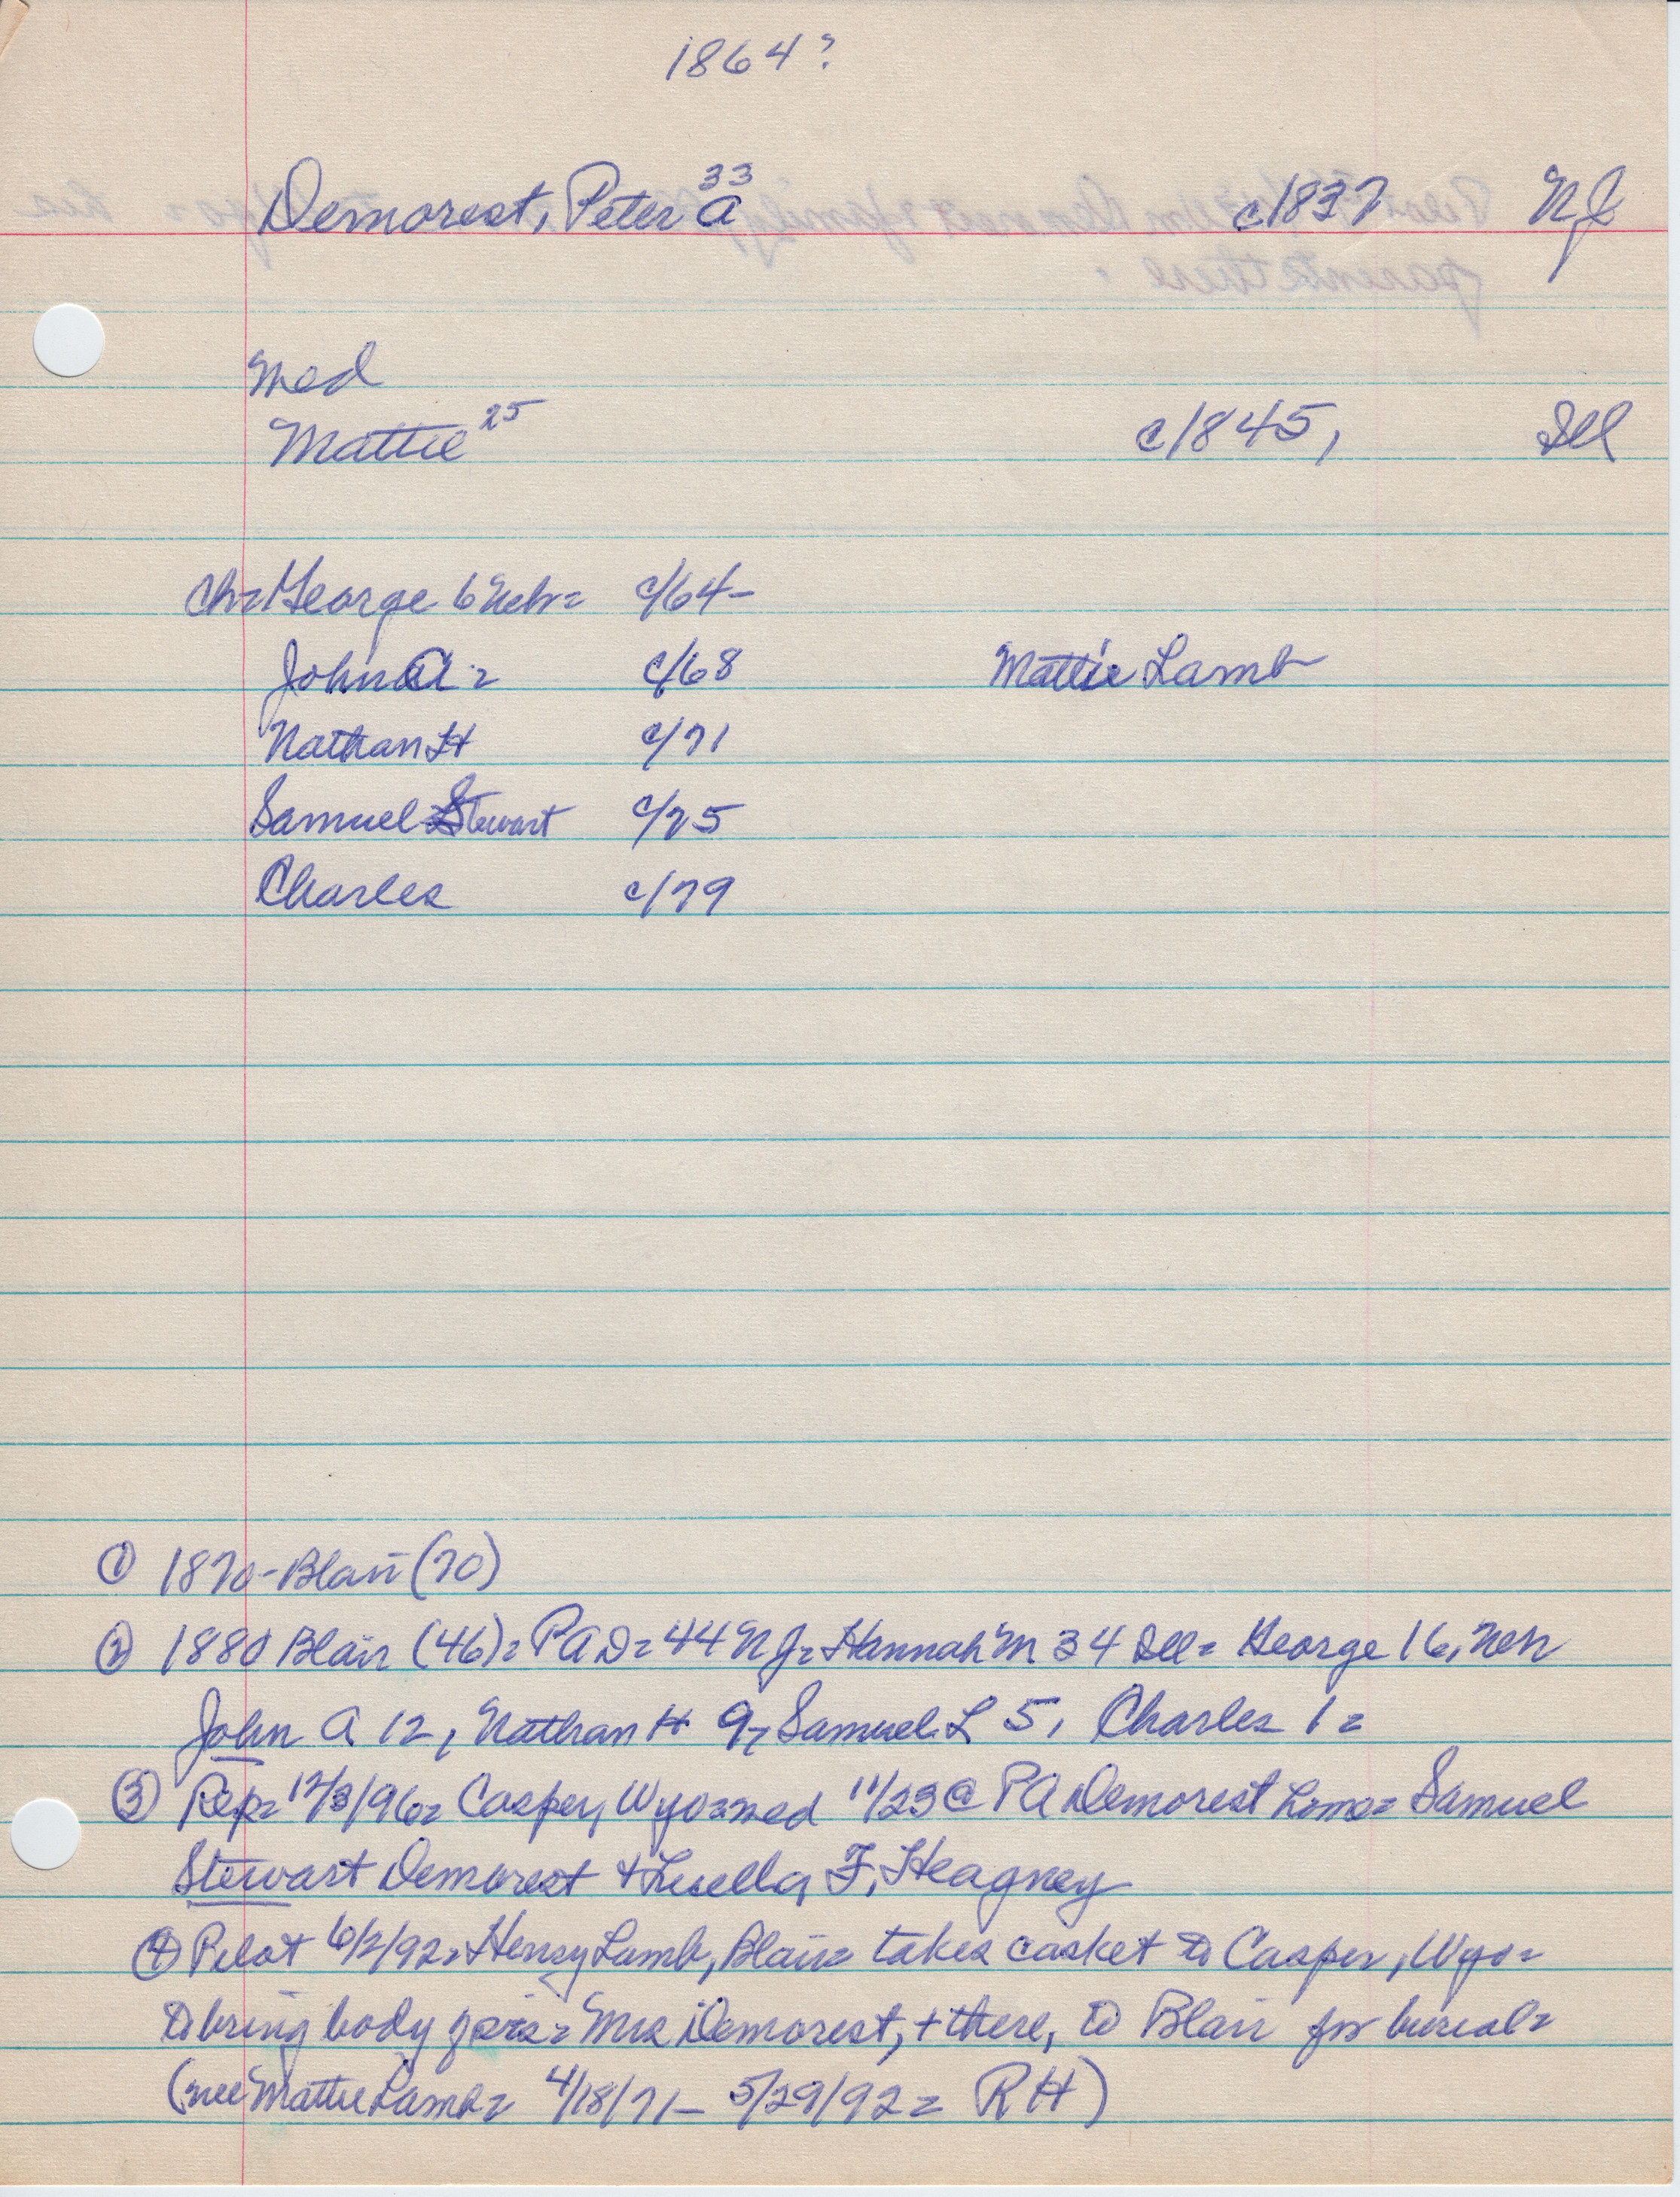 1864?
Demorest, Peter A 33 c1837 NJ
med
Mattie 25 c1845, Ill
ch= George 6 Neb= c/64-
John A = c/68 Mattie Lamb
Nathan H c/71
Samuel Stewart c/75
Charles c/79
① 1870-Blair (70)
② 1880 Blair (46)= PAD=44 NJ= Hannah M 34 Ill= George 16, Neb
John A 12, Nathan H 9, Samuel L 5, Charles 1=
③ Rep= 12/3/96= Casper, Wyo=med 11/23 @ PA Demorest home= Samuel
Stewart Demorest + Luella F. Heagney
④ Pilot 6/2/92= Henry Lamb, Blair= takes casket to Casper, Wyo=
to bring body = Mrs Demorest, + there, to Blair for burial=
(nee Mattie Lamb= 4/18/71- 5/29/92= RH)